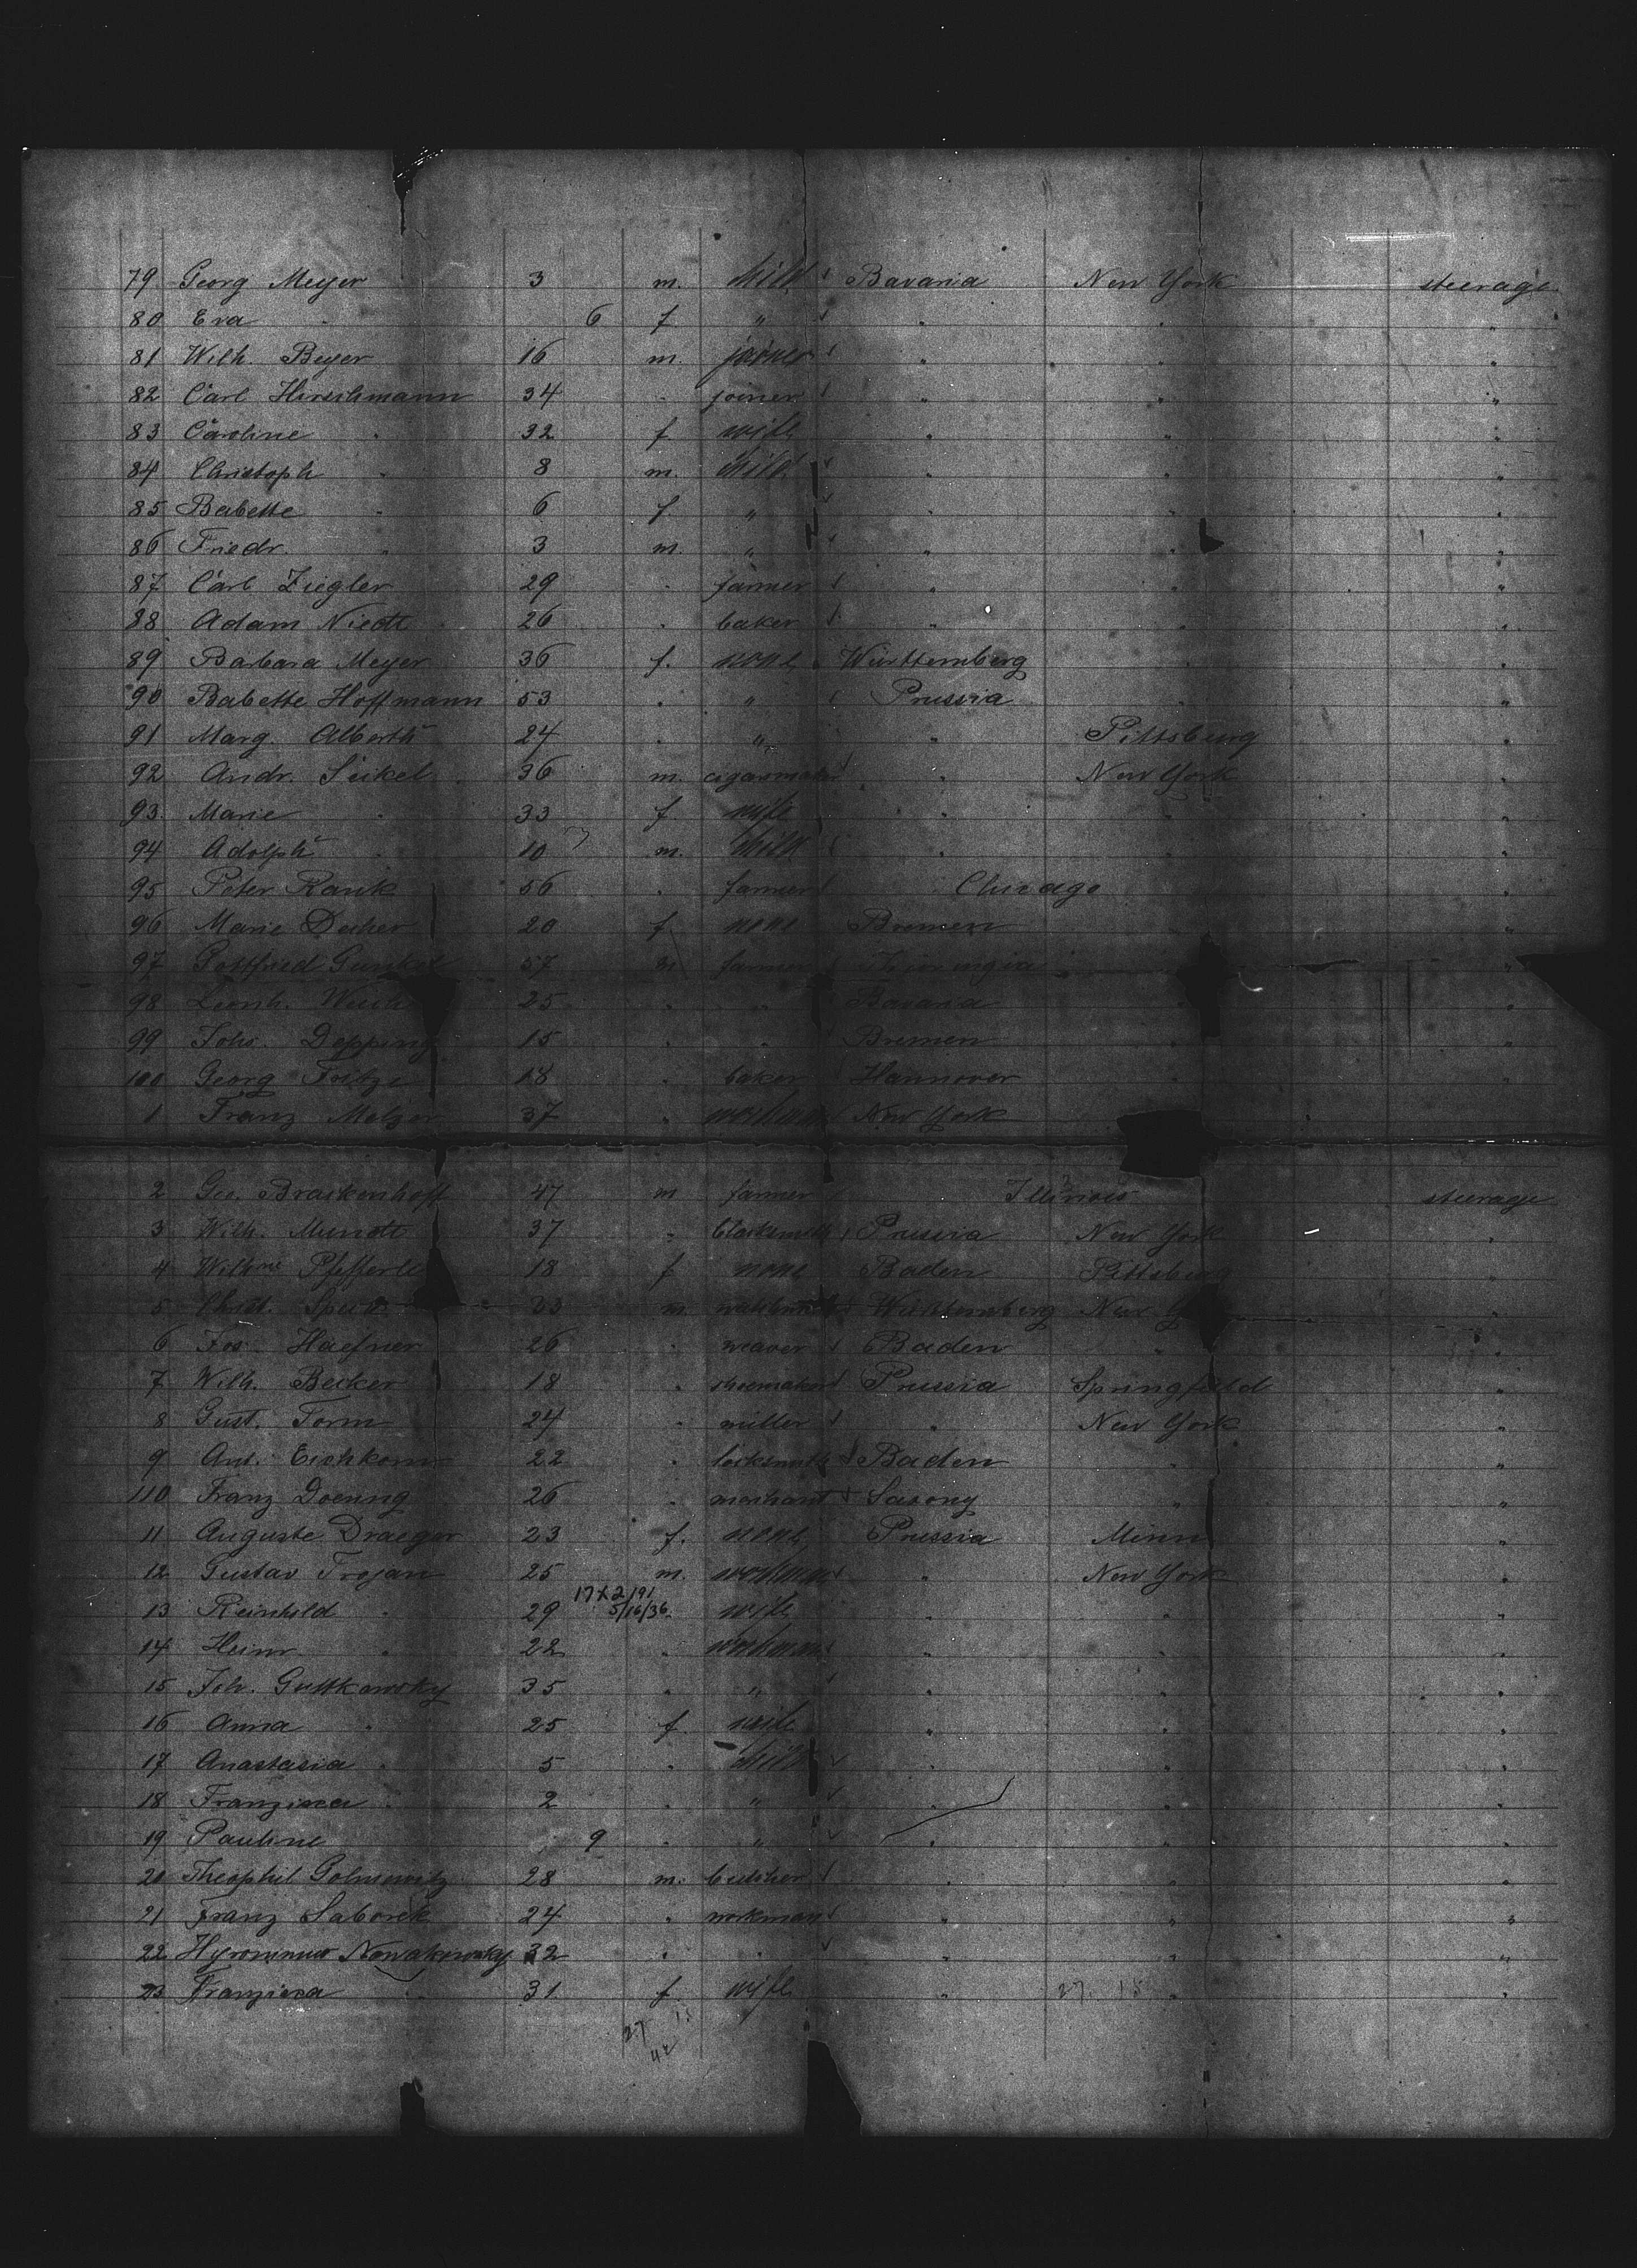 79 Georg Meyer 3 m. child Bavaria New York steerage
80 Eva " 6 f " " " "
81 Wilh. Beyer 16 m. joiner " " "
82 Carl Hirschmann 34 " joiner " " "
83 Caroline " 32 f wife " " "
84 Christoph " 8 m. child " " "
85 Babette " 6 f. " " " "
86 Friedr. " 3 m. " " " "
87 Carl Ziegler 29 " farmer " " "
88 Adam 26 " baker " " "
89 Barbara Meyer 36 f. none Württemberg " "
90 Babette Hoffmann 53 " " Prussia " "
91 Marg. Alberth 24 " " " Pittsburg "
92 Andr. Seikel 36 m. cigarmaker " New York "
93. Marie " 33 f wife " " "
94 Adolph " 10 m. child " " "
95 Peter Rauk 56 " farmer " Chicago "
96 Marie Decher 20 f. none Bremen "
97 Gottfried Gunkel 57 m farmer Thüringia " "
98 Leonh. 25 " " Bavaria " "
99 Johs. Depping 15 " " Bremen " "
100 Georg Fritze 18 " baker Hannover " "
1 Franz 37 " workman New York
2 Geo. Brackenhoff 47 m farmer Illinois steerage
3 Wilh. Mundt 37 " blacksmith Prussia New York "
4 Wilhne Pfefferle 18 f none Baden Pittsburg "
5 Christ. 33 m. Württemberg New "
6 Jos. Haefner 26 " weaver Baden " "
7 Wilh. Becker 18 " shoemaker Prussia Springfield "
8 Gust. Form 24 " miller " New York "
9 Ant. Eichkorn 22 " locksmith Baden " "
110 Franz Doering 26 " merchant Saxony " "
11 Auguste Draeger 23 f. none Prussia Minn "
12 Gustav Trojan 25 m. workman " New York "
17X2/91
13 Reinhold " 29 5/16/36 wife " " "
14 Heinr. " 22 " workman " " "
15 Joh. Guttkowsky 35 " " " " "
16 Anna " 25 f. wife " " "
17 Anastasia " 5 " child " " "
18 Franzisca " 2 " " " " "
19 Pauline 9 " " " " "
20 Theophil 28 m. butcher " " "
21 Franz Saborek 24 " workman " " "
22 Hyronimus Nowakowsky 32 " " " " "
23 Franzisca " 31 f wife " 27. 15 " "
27 15
42